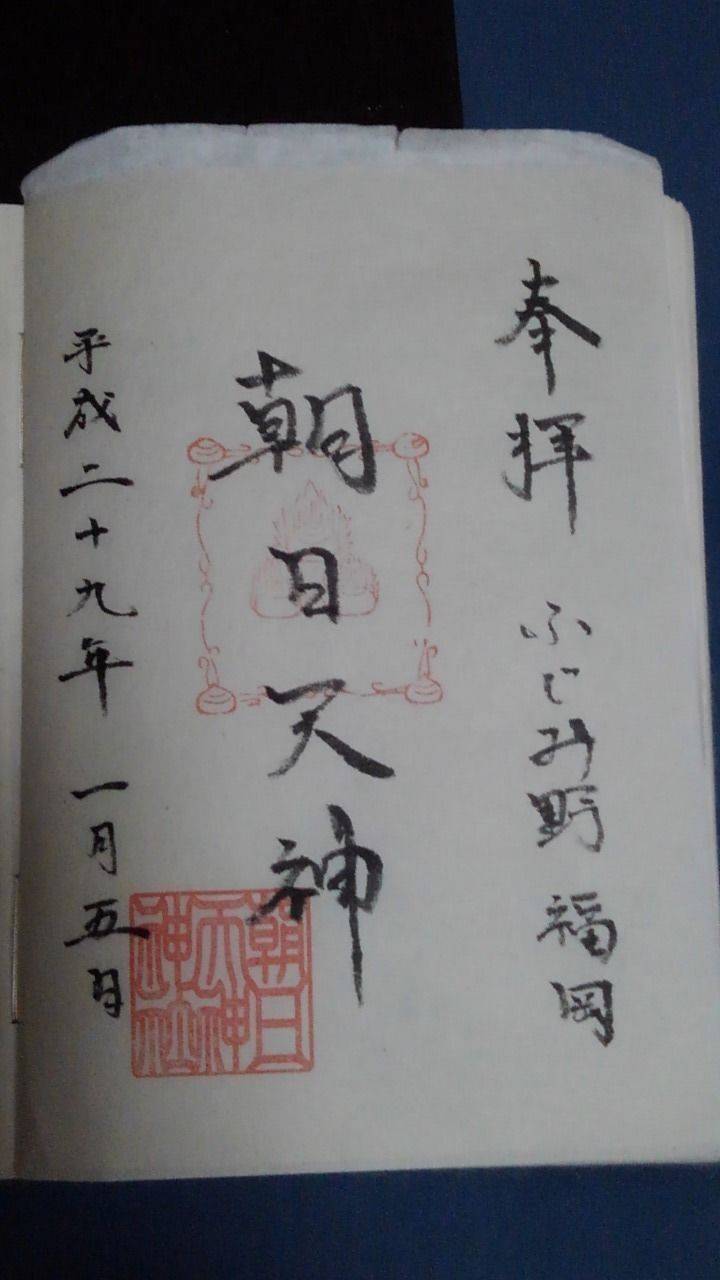 奉拝 ふじみ野 福岡
朝日天神
平成二十九年 一月五日
朝日
天神
神社